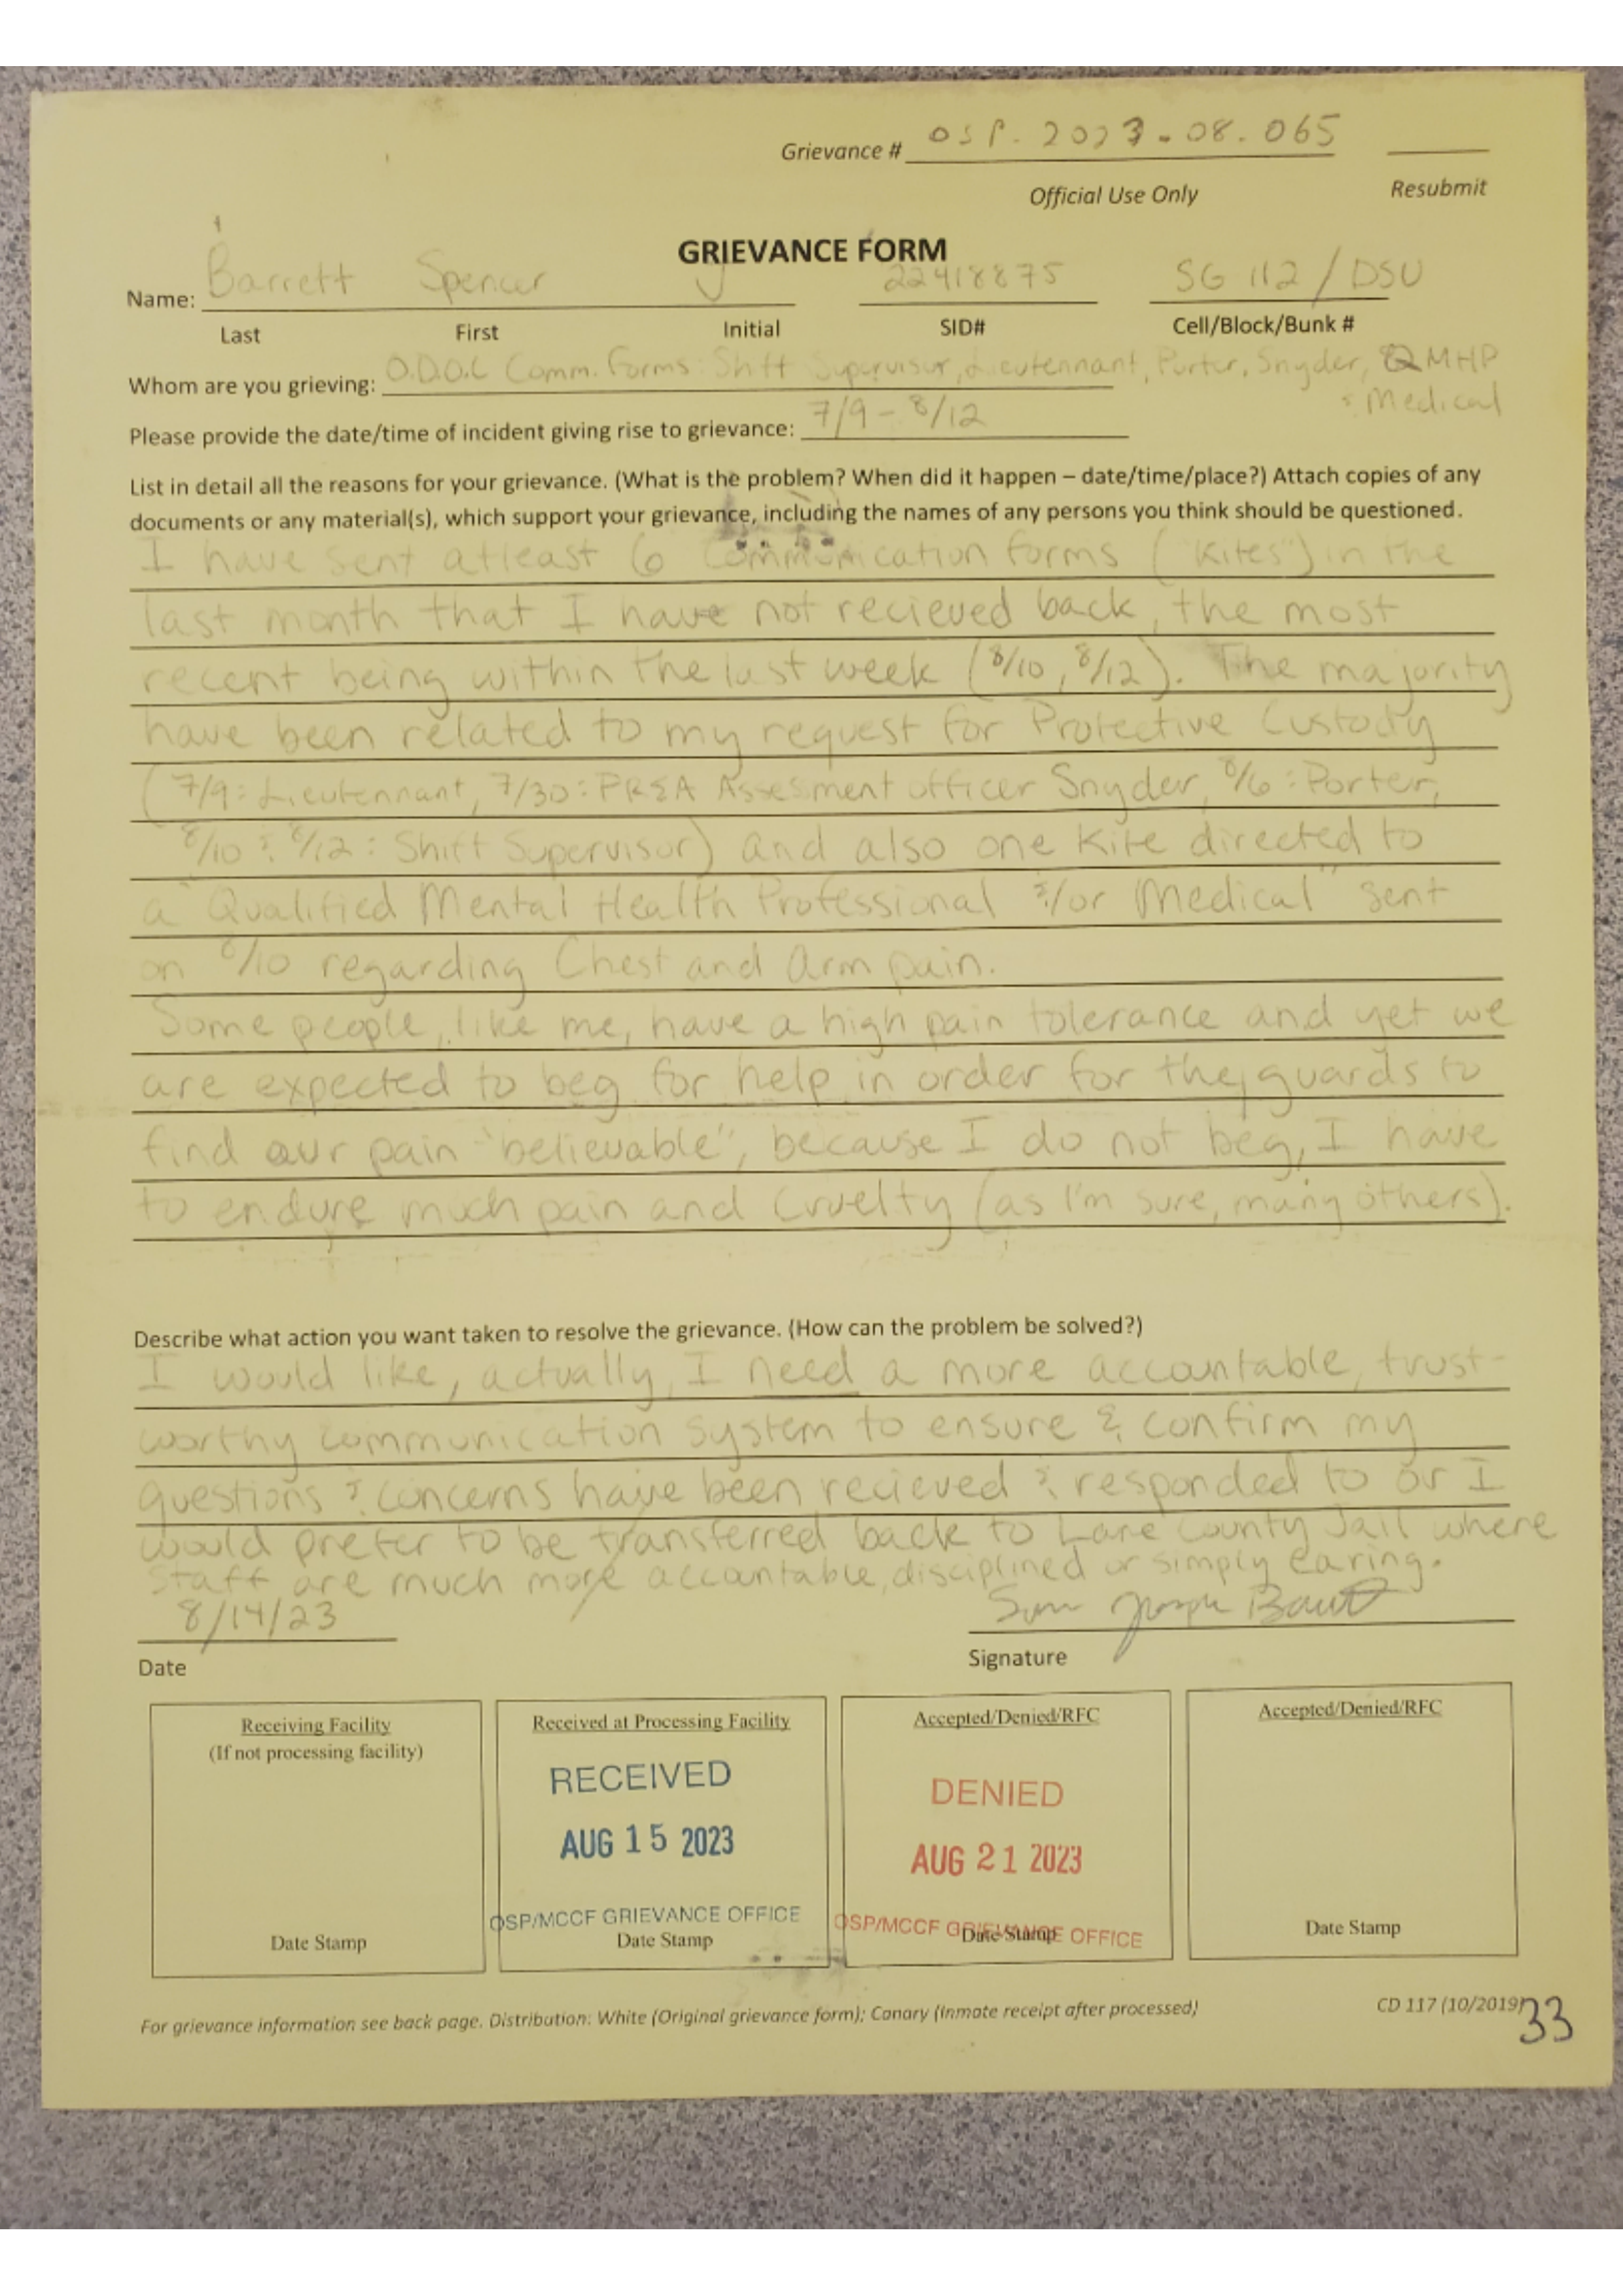 Grievance # OSP.2023.08.065
Official Use Only Resubmit
GRIEVANCE FORM
Name: Barrett Spencer J 22418875 SG 112 / DSU
Last First Initial SID# Cell/Block/Bunk #
Whom are you grieving: O.D.O.C Comm. Forms: Shift Supervisor, Lieutennant, Porter, Snyder, QMHP
& Medical
Please provide the date/time of incident giving rise to grievance: 7/9 - 8/12
List in detail all the reasons for your grievance. (What is the problem? When did it happen – date/time/place?) Attach copies of any
documents or any material(s), which support your grievance, including the names of any persons you think should be questioned.
I have sent atleast 6 Communication forms ("Kites") in the
last month that I have not recieved back, the most
recent being within the last week (8/10, 8/12). The majority
have been related to my request for Protective Custody
(7/9: Lieutennant, 7/30: PREA Assesment officer Snyder, 8/6: Porter,
8/10 & 8/12: Shift Supervisor) and also one Kite directed to
a "Qualified Mental Health Professional &/or Medical" sent
on 8/10 regarding Chest and Arm pain.
Some people, like me, have a high pain tolerance and yet we
are expected to beg for help in order for the guards to
find our pain "believable", because I do not beg, I have
to endure much pain and Cruelty (as I'm sure, many others).
Describe what action you want taken to resolve the grievance. (How can the problem be solved?)
I would like, actually, I need a more accountable, trust-
worthy communication system to ensure & confirm my
questions & concerns have been recieved & responded to or I
would prefer to be transferred back to Lane County Jail where
staff are much more accountable, disciplined or simply caring.
8/14/23
Date Signature
Receiving Facility
(If not processing facility)
Date Stamp
Received at Processing Facility
RECEIVED
AUG 15 2023
OSP/MCCF GRIEVANCE OFFICE
Date Stamp
Accepted/Denied/RFC
DENIED
AUG 21 2023
OSP/MCCF GRIEVANCE OFFICE
Date Stamp
Accepted/Denied/RFC
Date Stamp
For grievance information see back page. Distribution: White (Original grievance form); Canary (Inmate receipt after processed)
CD 117 (10/2019)
33